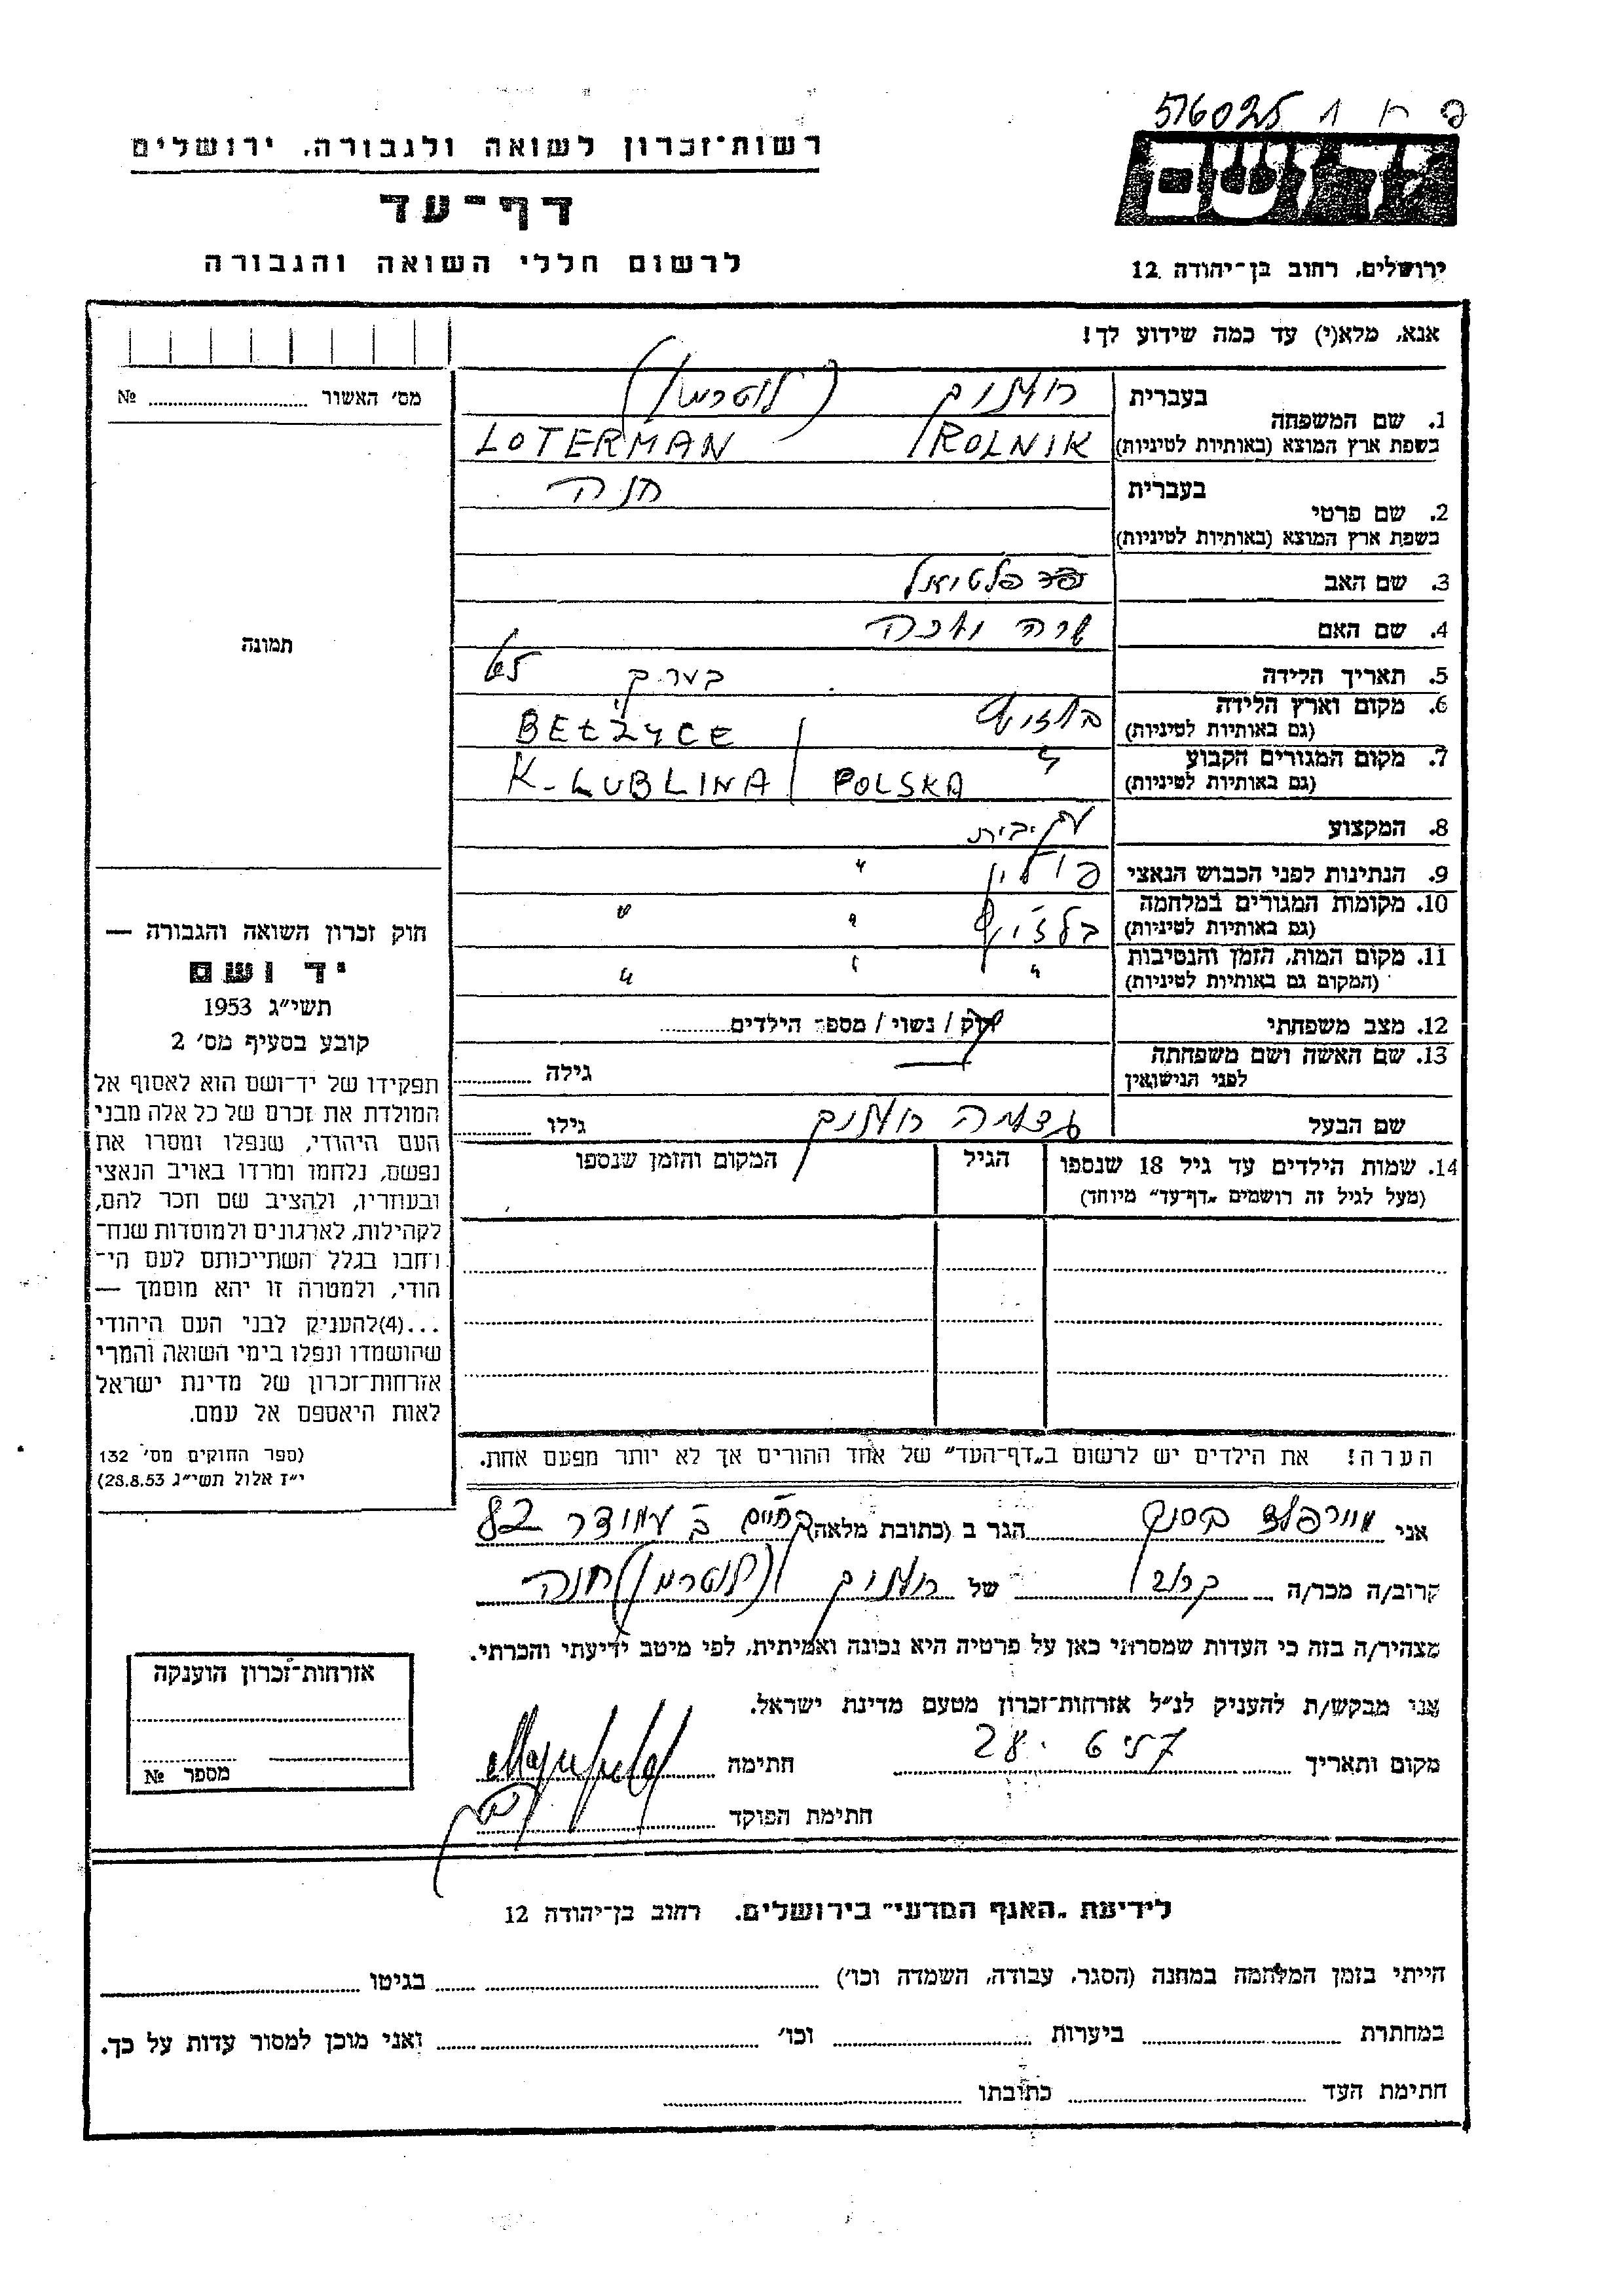 516025
רשות־זכרון לשואה ולגבורה. ירושלים
דף־עד
לרשום חללי השואה והגבורה
יד ושם
ירושלים, רחוב בן־יהודה 12
אנא, מלא(י) עד כמה שידוע לך!
מס׳ האשור № 
1. שם המשפחה בעברית רולניק (לוטרמן)
בשפת ארץ המוצא (באותיות לטיניות) ROLNIK / LOTERMAN
2. שם פרטי בעברית חנה
בשפת ארץ המוצא (באותיות לטיניות)
3. שם האב פלטיאל
4. שם האם שרה
5. תאריך הלידה
6. מקום וארץ הלידה
(גם באותיות לטיניות) BEŁŻYCE
7. מקום המגורים הקבוע "
(גם באותיות לטיניות) K-LUBLINA / POLSKA
8. המקצוע עק. בית
9. הנתינות לפני הכבוש הנאצי פולין "
10. מקומות המגורים במלחמה
(גם באותיות לטיניות) בלז'יץ " "
11. מקום המות, הזמן והנסיבות
(המקום גם באותיות לטיניות) " " "
12. מצב משפחתי רוק / נשוי / מספר הילדים
13. שם האשה ושם משפחתה
לפני הנישואין גילה
שם הבעל רולניק גילו
14. שמות הילדים עד גיל 18 שנספו הגיל המקום והזמן שנספו
(מעל לגיל זה רושמים „דף־עד״ מיוחד)
הערה! את הילדים יש לרשום ב„דף־העד״ של אחד ההורים אך לא יותר מפעם אחת.
תמונה
חוק זכרון השואה והגבורה —
יד ושם
תשי״ג 1953
קובע בסעיף מס׳ 2
תפקידו של יד־ושם הוא לאסוף אל
המולדת את זכרם של כל אלה מבני
העם היהודי, שנפלו ומסרו את
נפשם, נלחמו ומרדו באויב הנאצי
ובעוזריו, ולהציב שם וזכר להם,
לקהילות, לארגונים ולמוסדות שנח־
רחבו בגלל השתייכותם לעם הי־
הודי, ולמטרה זו יהא מוסמך —
...(4)להעניק לבני העם היהודי
שהושמדו ונפלו בימי השואה והמרי
אזרחות־זכרון של מדינת ישראל
לאות היאספם אל עמם.
(ספר החוקים מס׳ 132
י״ז אלול תשי״ג 28.8.53)
אני הגר ב (כתובת מלאה) 82
קרוב/ה מכר/ה של רולניק (לוטרמן) חנה
מצהיר/ה בזה כי העדות שמסרתי כאן על פרטיה היא נכונה ואמיתית, לפי מיטב ידיעתי והכרתי.
אני מבקש/ת להעניק לנ״ל אזרחות־זכרון מטעם מדינת ישראל.
מקום ותאריך חתימה
חתימת הפוקד
אזרחות־זכרון הוענקה
מספר №
לידיעת „האגף המדעי״ בירושלים. רחוב בן־יהודה 12
הייתי בזמן המלחמה במחנה (הסגר, עבודה, השמדה וכו׳) בגיטו
במחתרת ביערות וכו׳ ואני מוכן למסור עדות על כך.
חתימת העד כתובתו